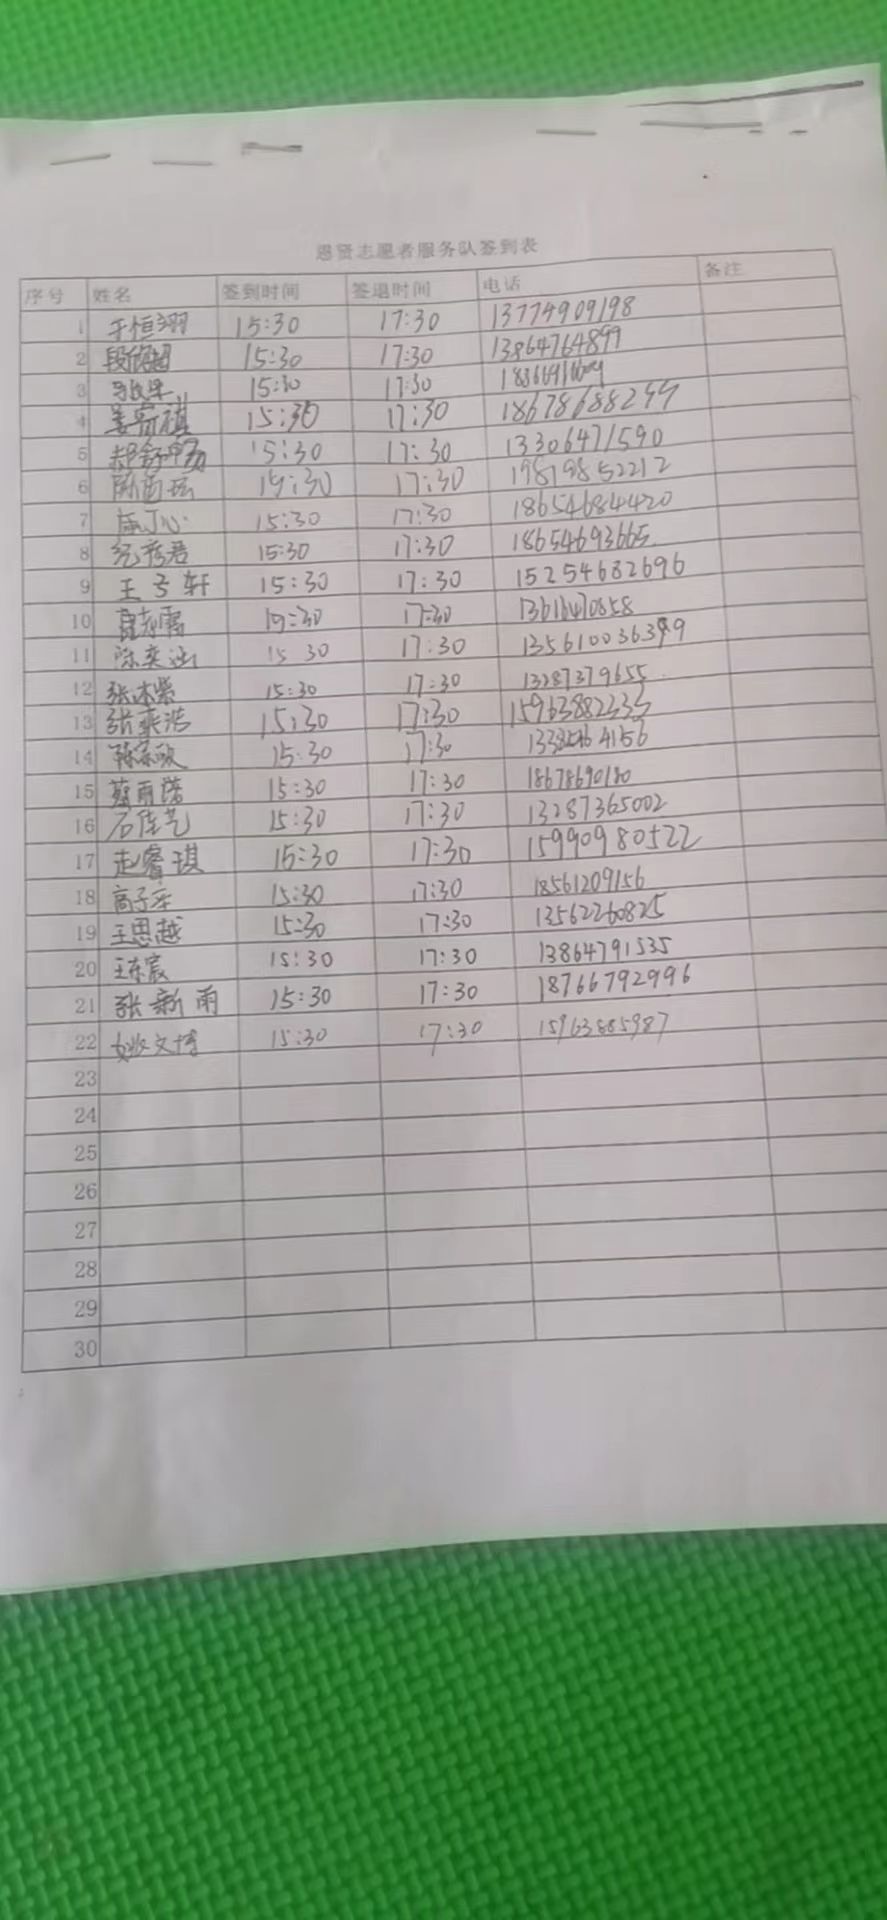 愚贤志愿者服务队签到表
序号 姓名 签到时间 签退时间 电话 备注
1 于恒翔 15:30 17:30 13774909198
2 15:30 17:30 13864764899
3 15:30 17:30
4 姜 祺 15:30 17:30 18678688299
5 郝舒畅 15:30 17:30 13306471590
6 15:30 17:30 19819852212
7 15:30 17:30 18654684420
8 纪秀君 15:30 17:30 18654693665
9 王 轩 15:30 17:30 15254682696
10 15:30 17:30
11 陈奕涵 15 30 17:30
12 张沐紫 15:30 17:30 13287379655
13 张奕浩 15:30 17:30 15963882333
14 15:30 17:30
15 蔡雨诺 15:30 17:30 18678690180
16 石佳艺 15:30 17:30 13287365002
17 赵睿琪 15:30 17:30 15990980522
18 高子 15:30 17:30 18561209156
19 王思越 15:30 17:30 13562260825
20 王东宸 15:30 17:30 13864791535
21 张新雨 15:30 17:30 18766792996
22 姚文博 15:30 17:30 15963885987
23
24
25
26
27
28
29
30